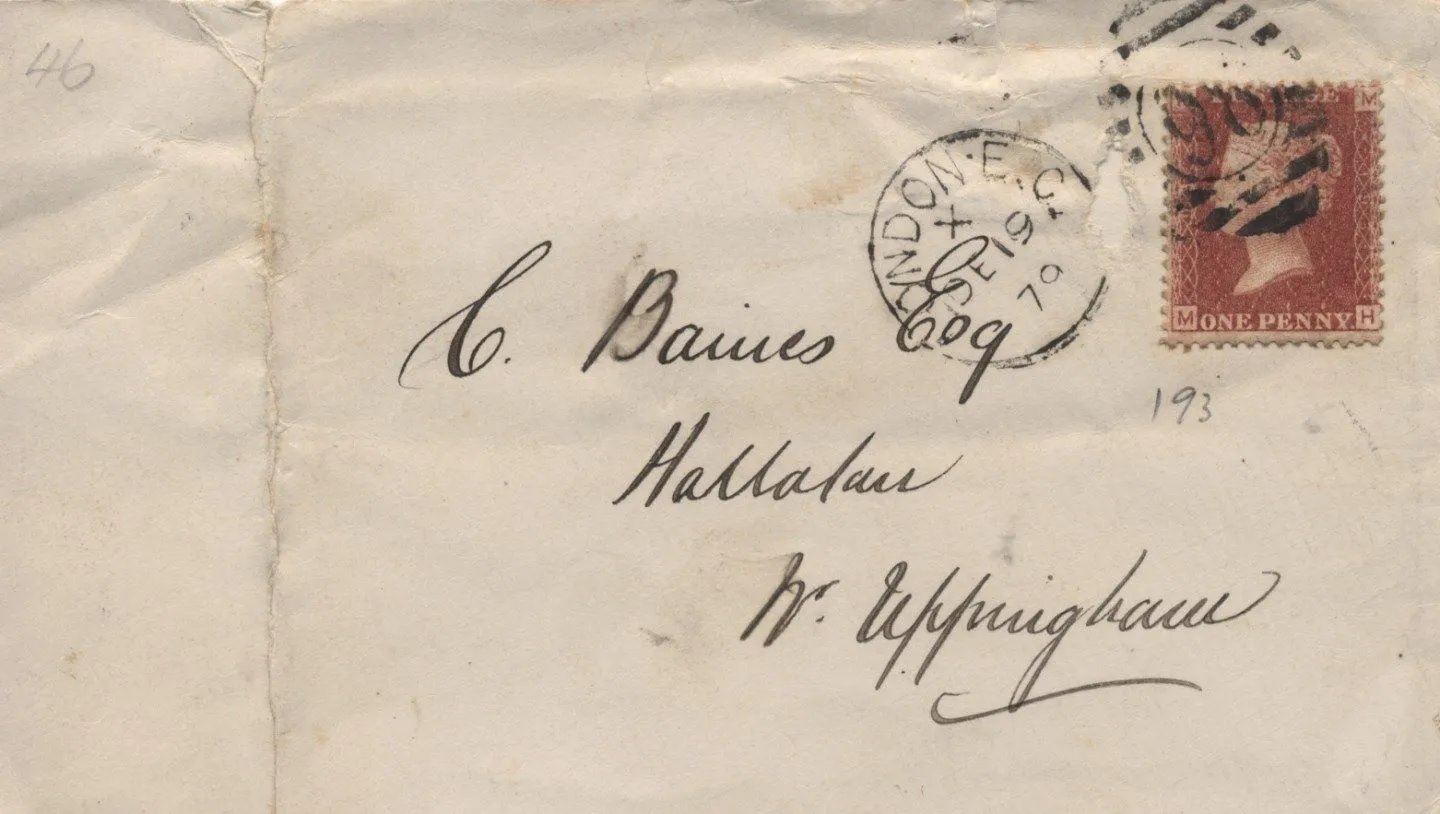 46
LONDON·E.C
X
SE 19
79
96
M
ONE PENNY
M H
193
C. Baines Esq
Hallaton
Nr. Uppingham